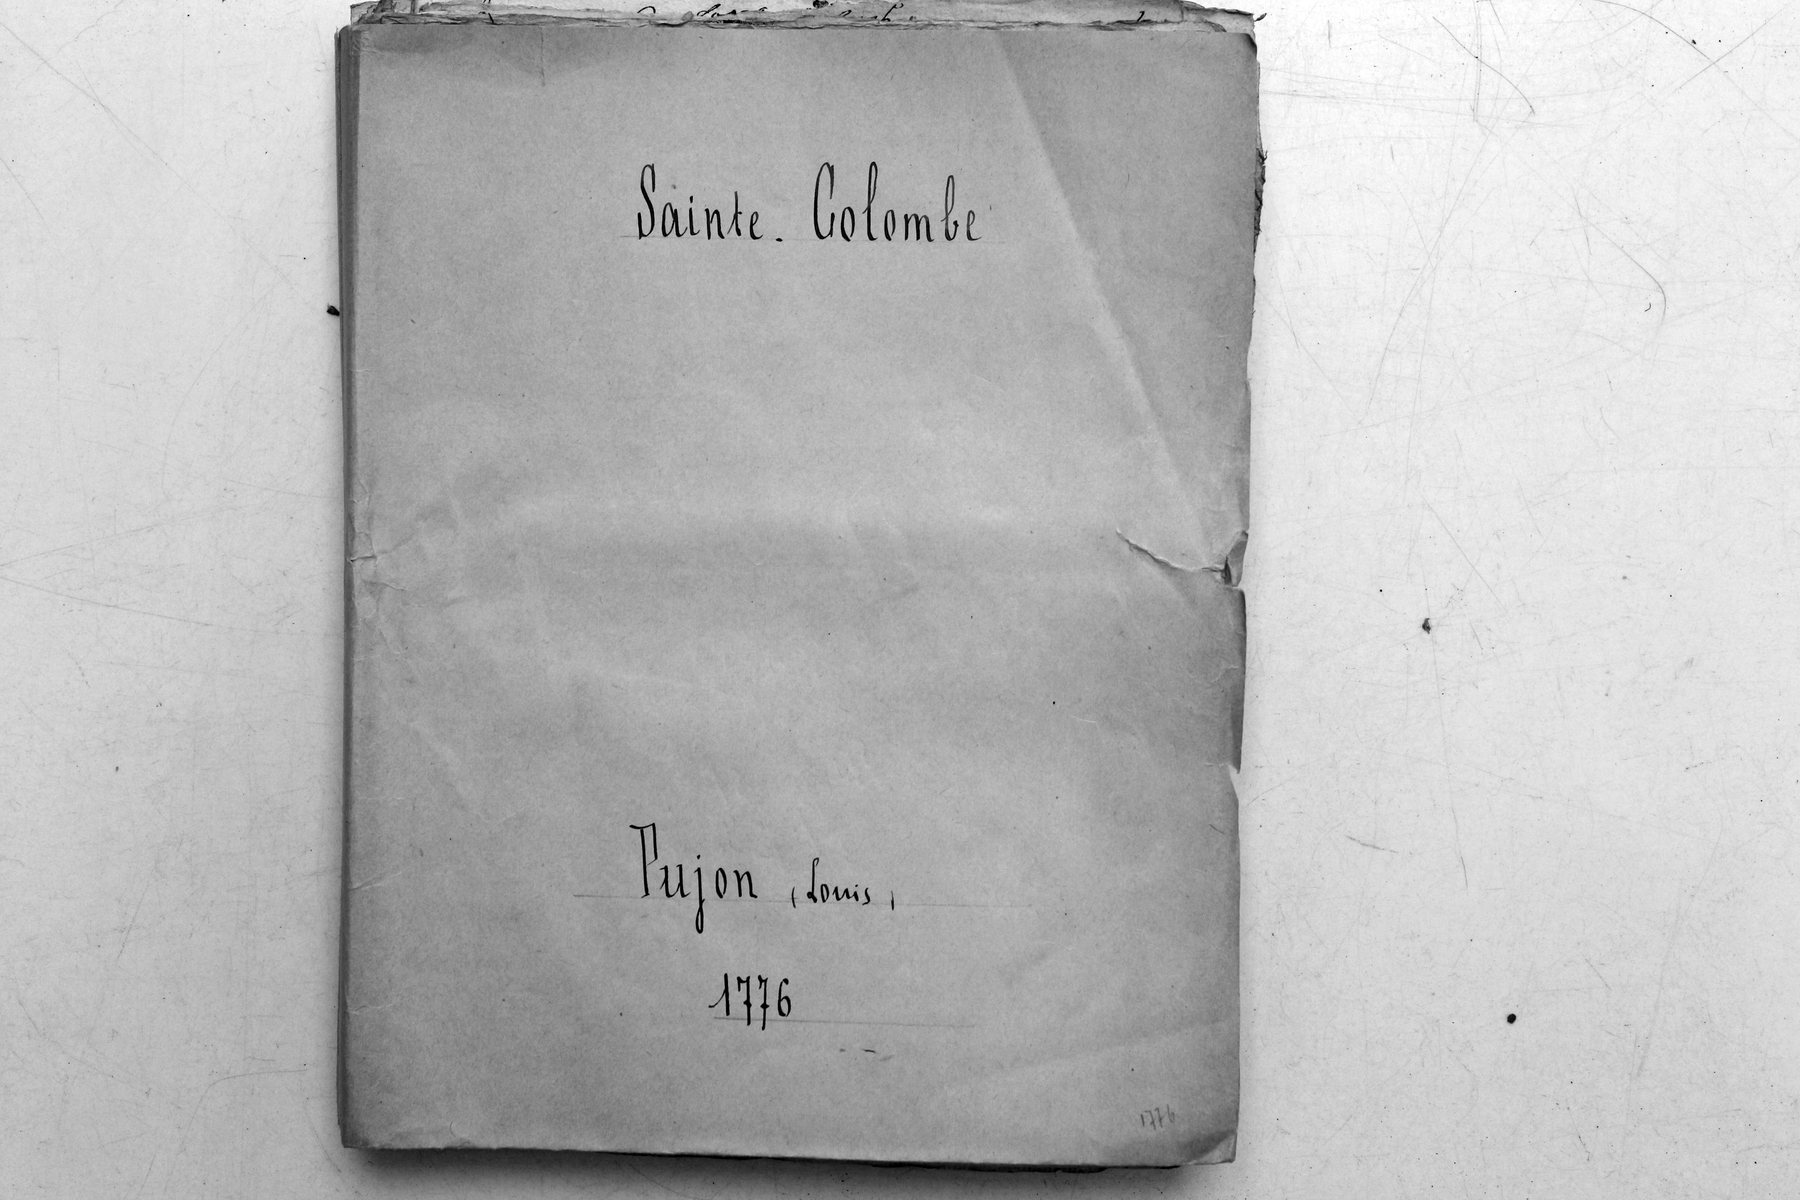 Sainte. Colombe
Pujon (Louis)
1776
1776